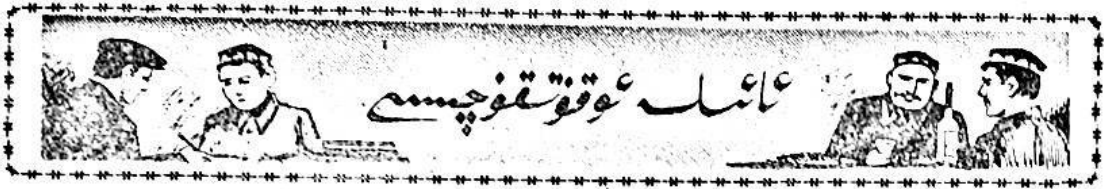 ئائىلە ئوقۇتقۇچىسى